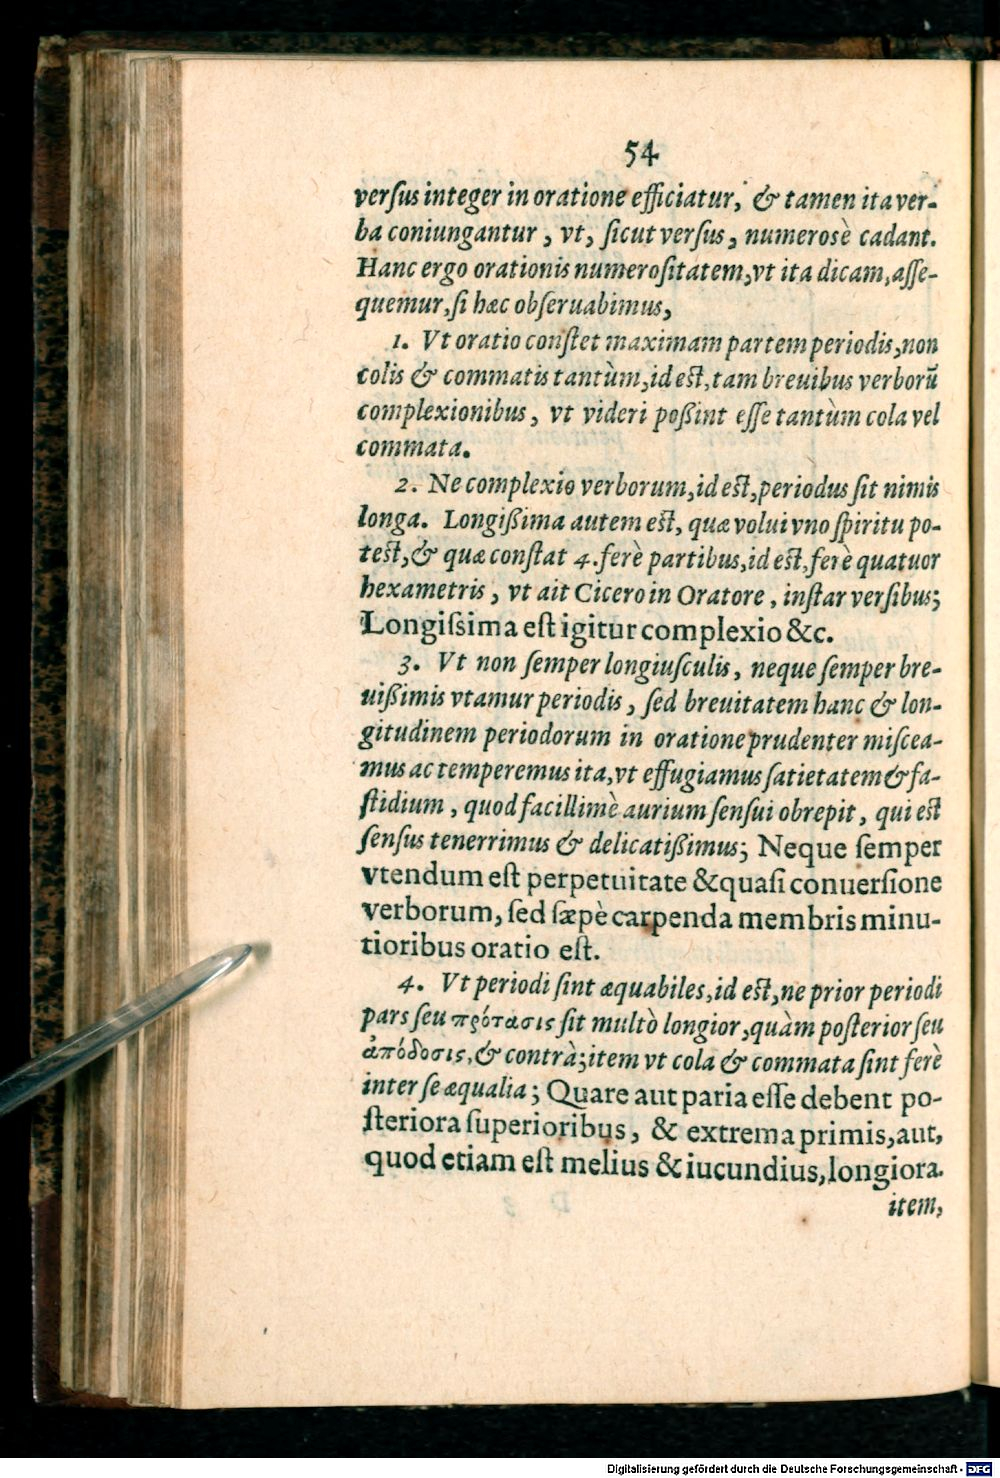 54
verſus integer in oratione efficiatur, & tamen ita ver-
ba coniungantur, vt, ſicut verſus, numerosè cadant.
Hanc ergo orationis numeroſitatem, vt ita dicam, aſſe-
quemur, ſi hæc obſeruabimus,
1. Vt oratio conſtet maximam partem periodis, non
colis & commatis tantùm, id eſt, tam breuibus verborũ
complexionibus, vt videri poßint eſſe tantùm cola vel
commata.
2. Ne complexio verborum, id eſt, periodus ſit nimis
longa. Longißima autem eſt, quæ volui vno ſpiritu po-
teſt, & quæ conſtat 4. ferè partibus, id eſt, ferè quatuor
hexametris, vt ait Cicero in Oratore, inſtar verſibus;
Longiſsima eſt igitur complexio &c.
3. Vt non ſemper longiuſculis, neque ſemper bre-
uißimis vtamur periodis, ſed breuitatem hanc & lon-
gitudinem periodorum in oratione prudenter miſcea-
mus ac temperemus ita, vt effugiamus ſatietatem & fa-
ſtidium, quod facillimè aurium ſenſui obrepit, qui eſt
ſenſus tenerrimus & delicatißimus; Neque ſemper
vtendum eſt perpetuitate & quaſi conuerſione
verborum, ſed ſæpè carpenda membris minu-
tioribus oratio eſt.
4. Vt periodi ſint æquabiles, id eſt, ne prior periodi
pars ſeu πρότασις ſit multò longior, quàm poſterior ſeu
ἀπόδοσις, & contrà; item vt cola & commata ſint ferè
inter ſe æqualia; Quare aut paria eſſe debent po-
ſteriora ſuperioribus, & extrema primis, aut,
quod etiam eſt melius & iucundius, longiora.
item,
Digitalisierung gefördert durch die Deutsche Forschungsgemeinschaft - DFG